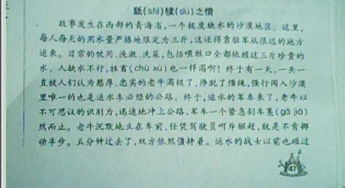 舐(shì)犊(dú)之情
故事发生在西部的青海省,一个极度缺水的沙漠地区。这里,
每人每天的用水量严格地限定为三斤,这还得靠驻军从很远的地方
运来。日常的饮用、洗漱、洗菜、包括喂牲口全部依赖这三斤珍贵的
水。人缺水不行,牲畜(chù xù)也一样渴啊!终于有一天,一头一
直被人们认为憨厚、忠实的老牛渴极了,挣脱了缰绳,强行闯入沙漠
里唯一的也是运水车必经的公路。终于,运水的军车来了,老牛以
不可思议的识别力,迅速地冲上公路,军车一个紧急刹车戛(gā jiá)
然而止。老牛沉默地立在车前,任凭驾驶员呵斥驱赶,就是不肯挪
动半步。五分钟过去了,双方依然僵持着。运水的战士以前也碰过
47